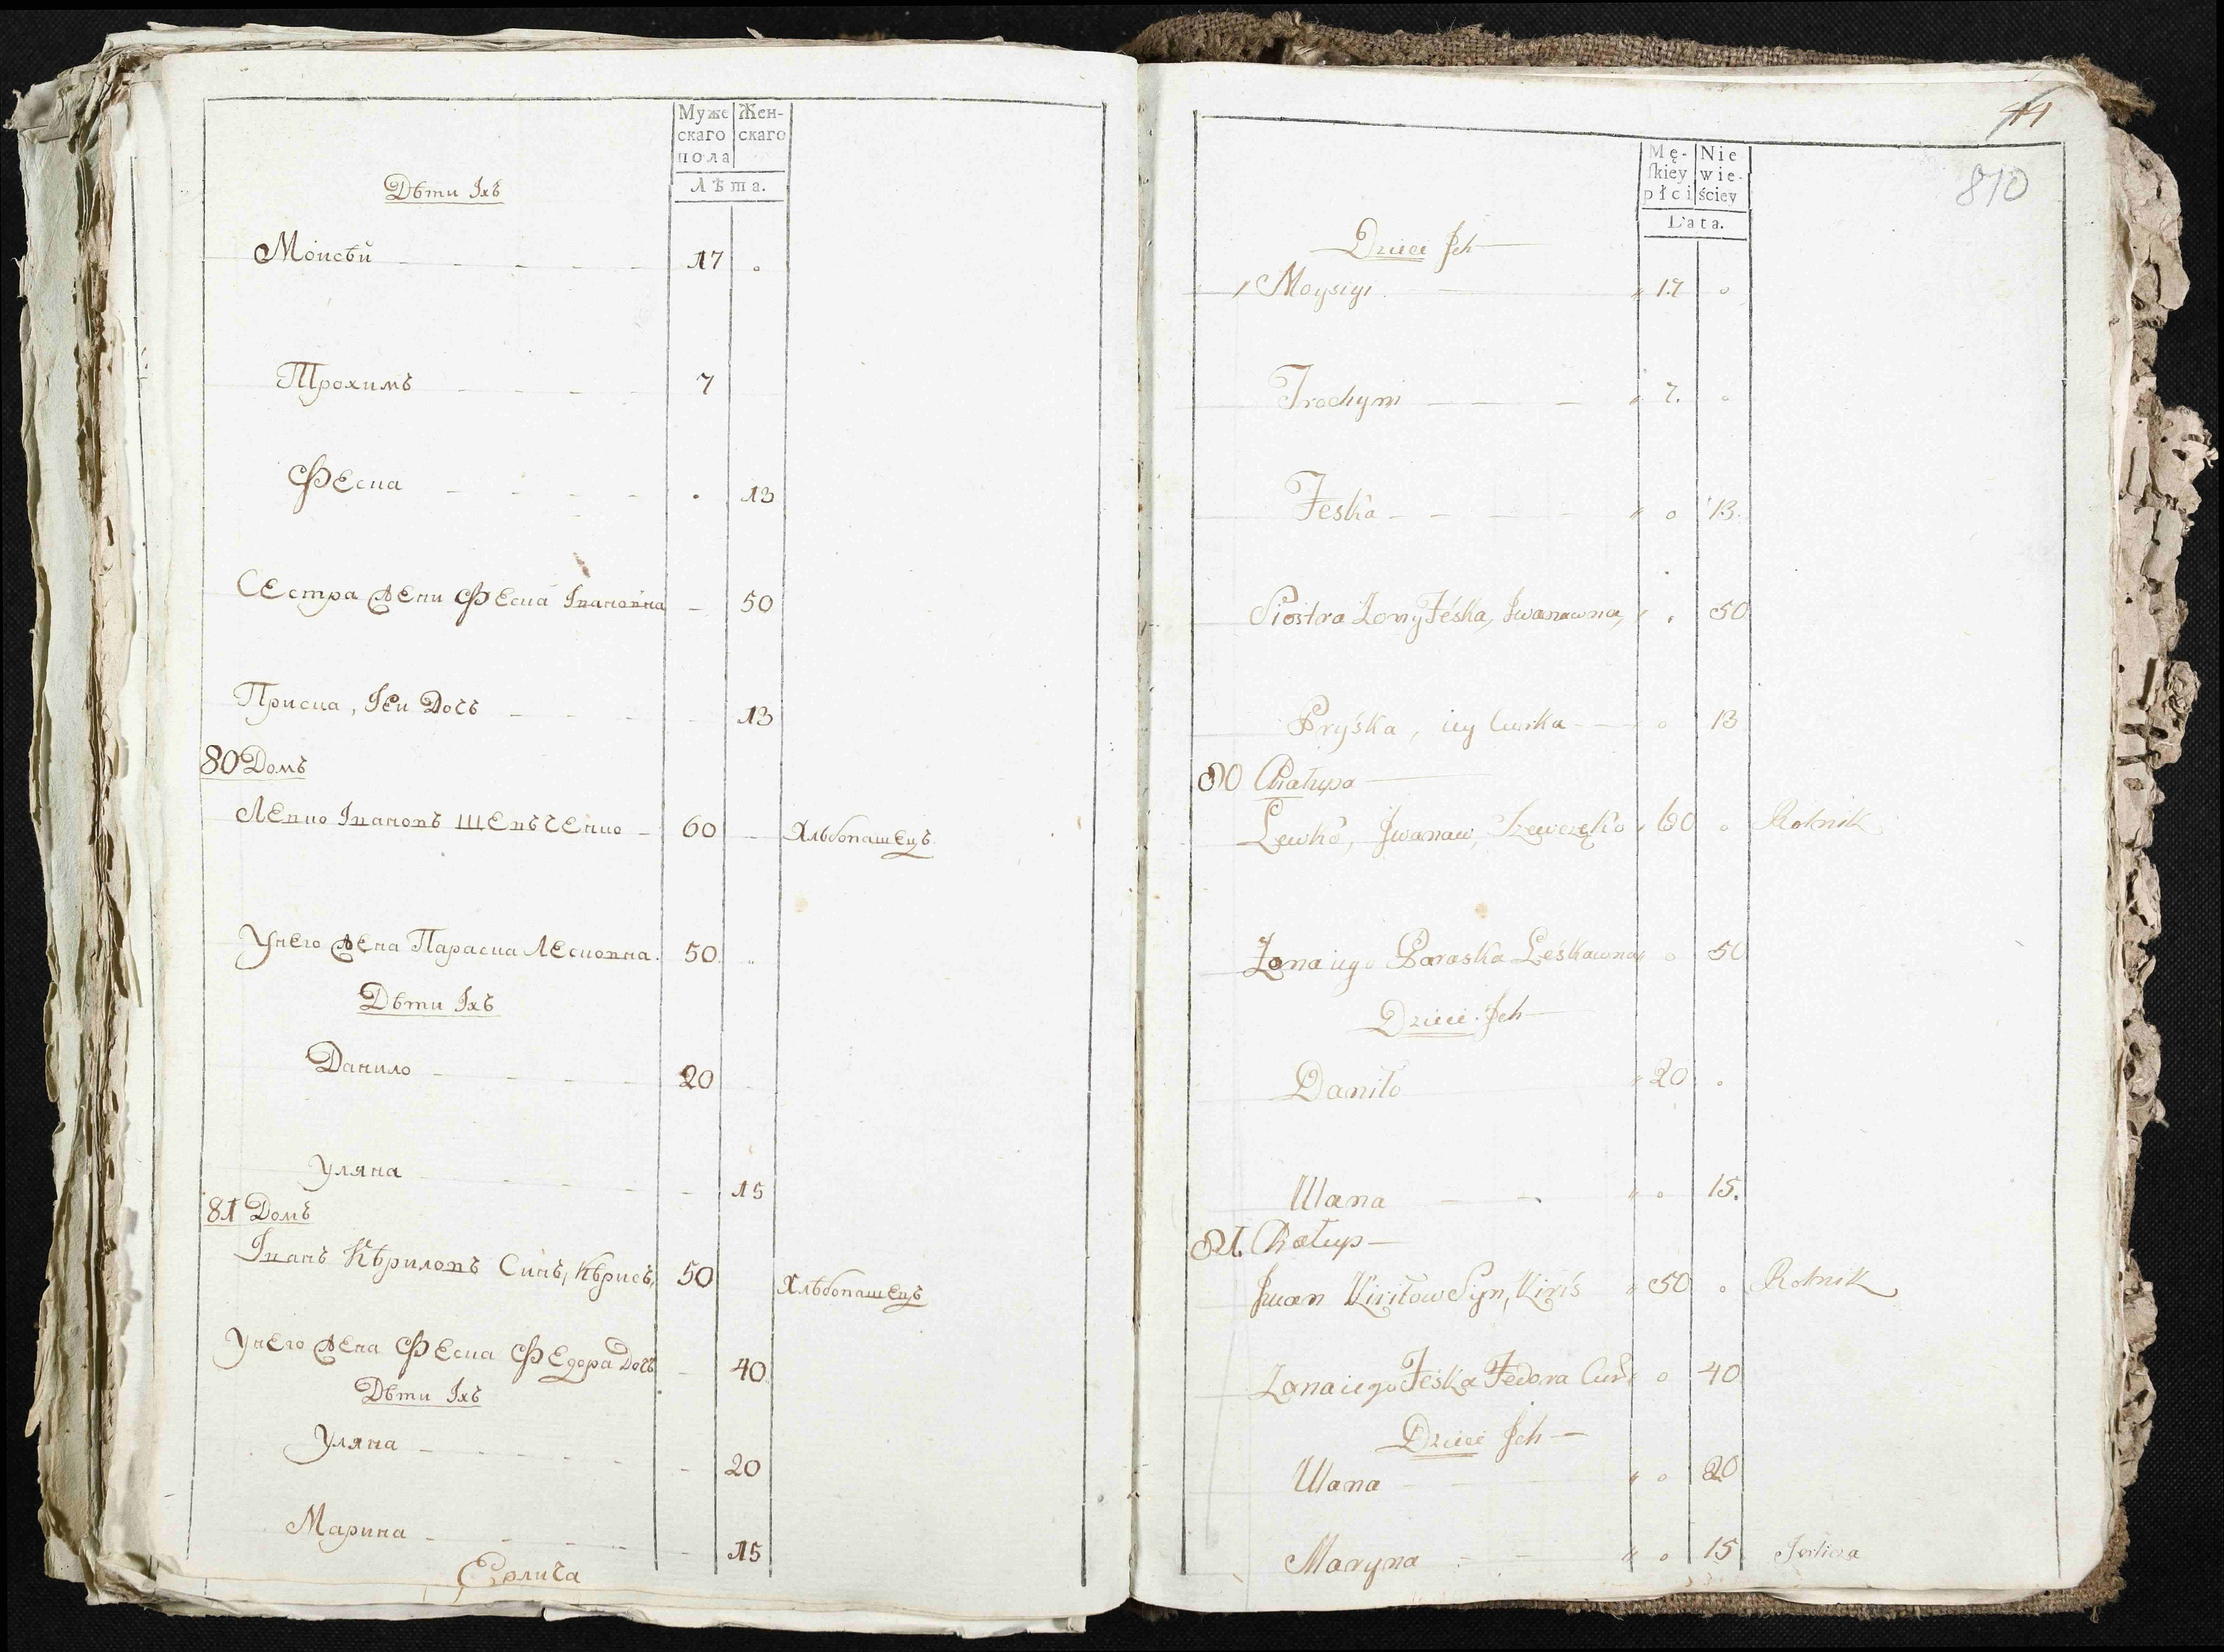 Муже Жен-
скаго скаго
пола
Лѣта.
Дѣти Іхъ
Моисѣй 17
Трохимъ 7
Феска 13
Сестра Жени Феска Івановна 50
Приска, Іеи Дочъ 13
80 Домъ
Левко Івановъ Шевъченко 60 Хлѣбопашецъ
Унего Жена Параска Лесковна 50
Дѣти Іхъ
Данило 20
Уляна 15
81 Домъ
Іванъ Кѣриловъ Синъ, Кѣрисъ, 50 Хлѣбопашецъ
Унего Жена Феска Федора Дочъ 40
Дѣти Іхъ
Уляна 20
Марина 15
810
Mę- Nie
ſkiey wie-
płci ściey
Lata.
Dzieci Jch
Moysiyi 17 0
Trochym 7. 0
Feska 0 13.
Siostra Zony Féska, Jwanawna, 50
Pryśka, iey Curka 0 13
80 Chałupa
Lewko, Jwanaw, Szewczęko 60 0 Rolnik
Zona iego Paraska Leśkawna 0 50
Dzieci Jch
Daniło 20
Ulana 0 15.
81. Chałup
Jwan Kiriłow Syn, Kiriś 50 0 Rolnik
Zona iego Feśka Fedora Cur 0 40
Dzieci Jch
Ulana 0 20
Maryna 0 15